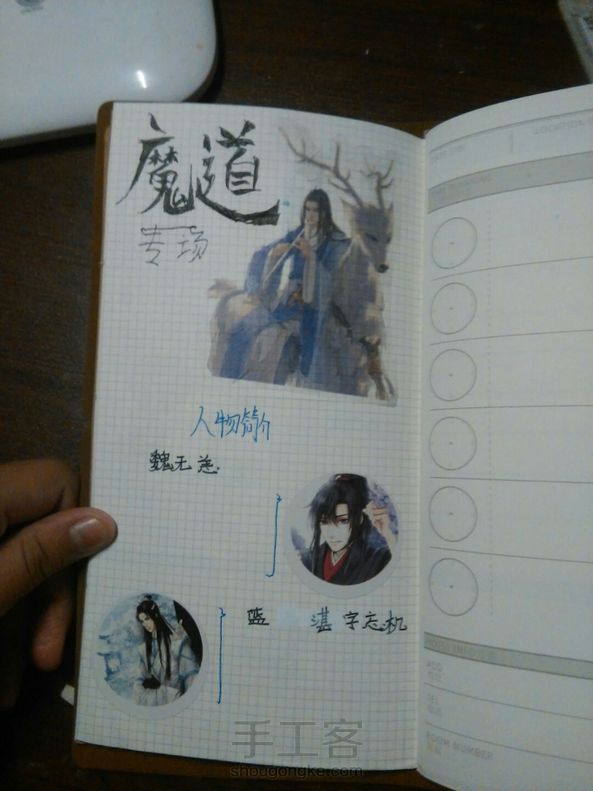 魔道
专场
人物简介
魏无羡
蓝 湛 字忘机
手工客
shougongke.com
ROOM NUMBER